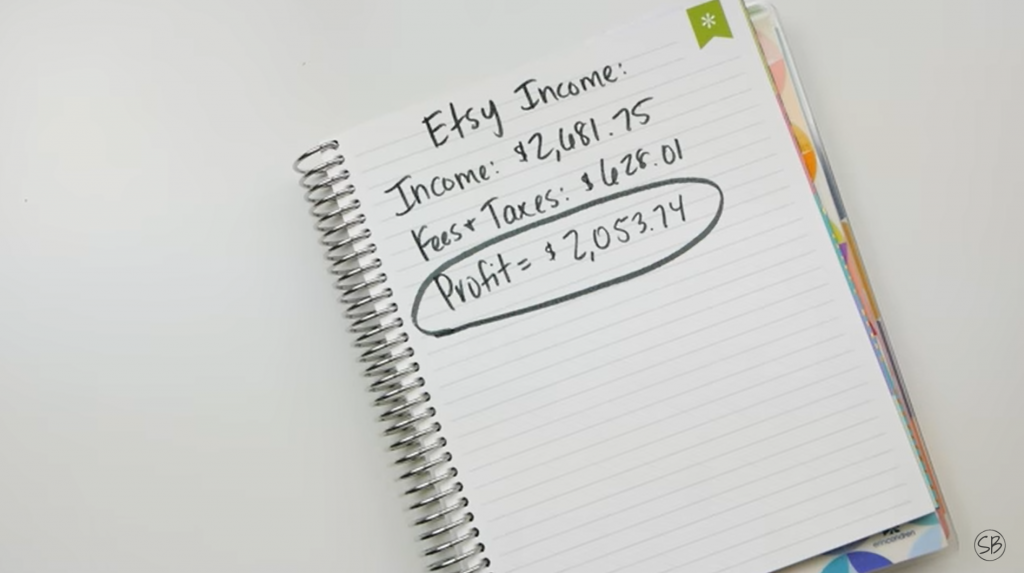 *
Etsy Income:
Income: $2,681.75
Fees+ Taxes: $628.01
Profit = $2,053.74
erincondren
SB